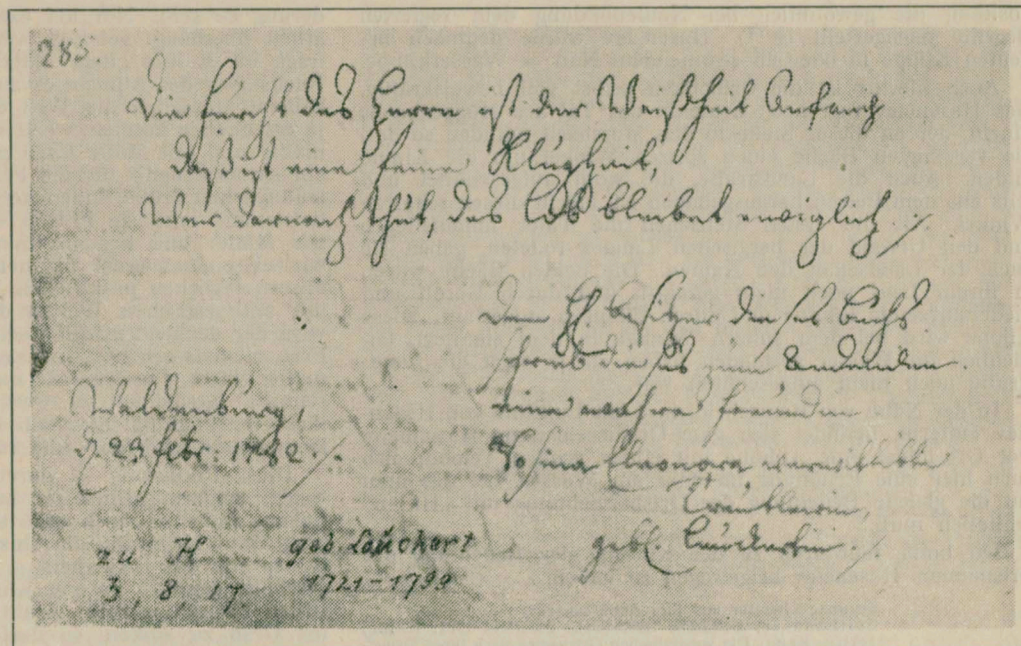 285.
Die Furcht des Herrn ist der Weißheit Anfang
daß ist eine feine Klugheit,
wer darnach thut, des Lob bleibet ewiglich
Dem besitzer dieses Buchs
schrieb dieses zum Andenken
eine wahre freundin
Waldenburg,
d. 23 febr: 1782
Rosina Eleonora verwittibte
Träutlerin,
gebl. Lauckertin.
zu H geb. Lauchert
3, 8, 17. 1721-1799